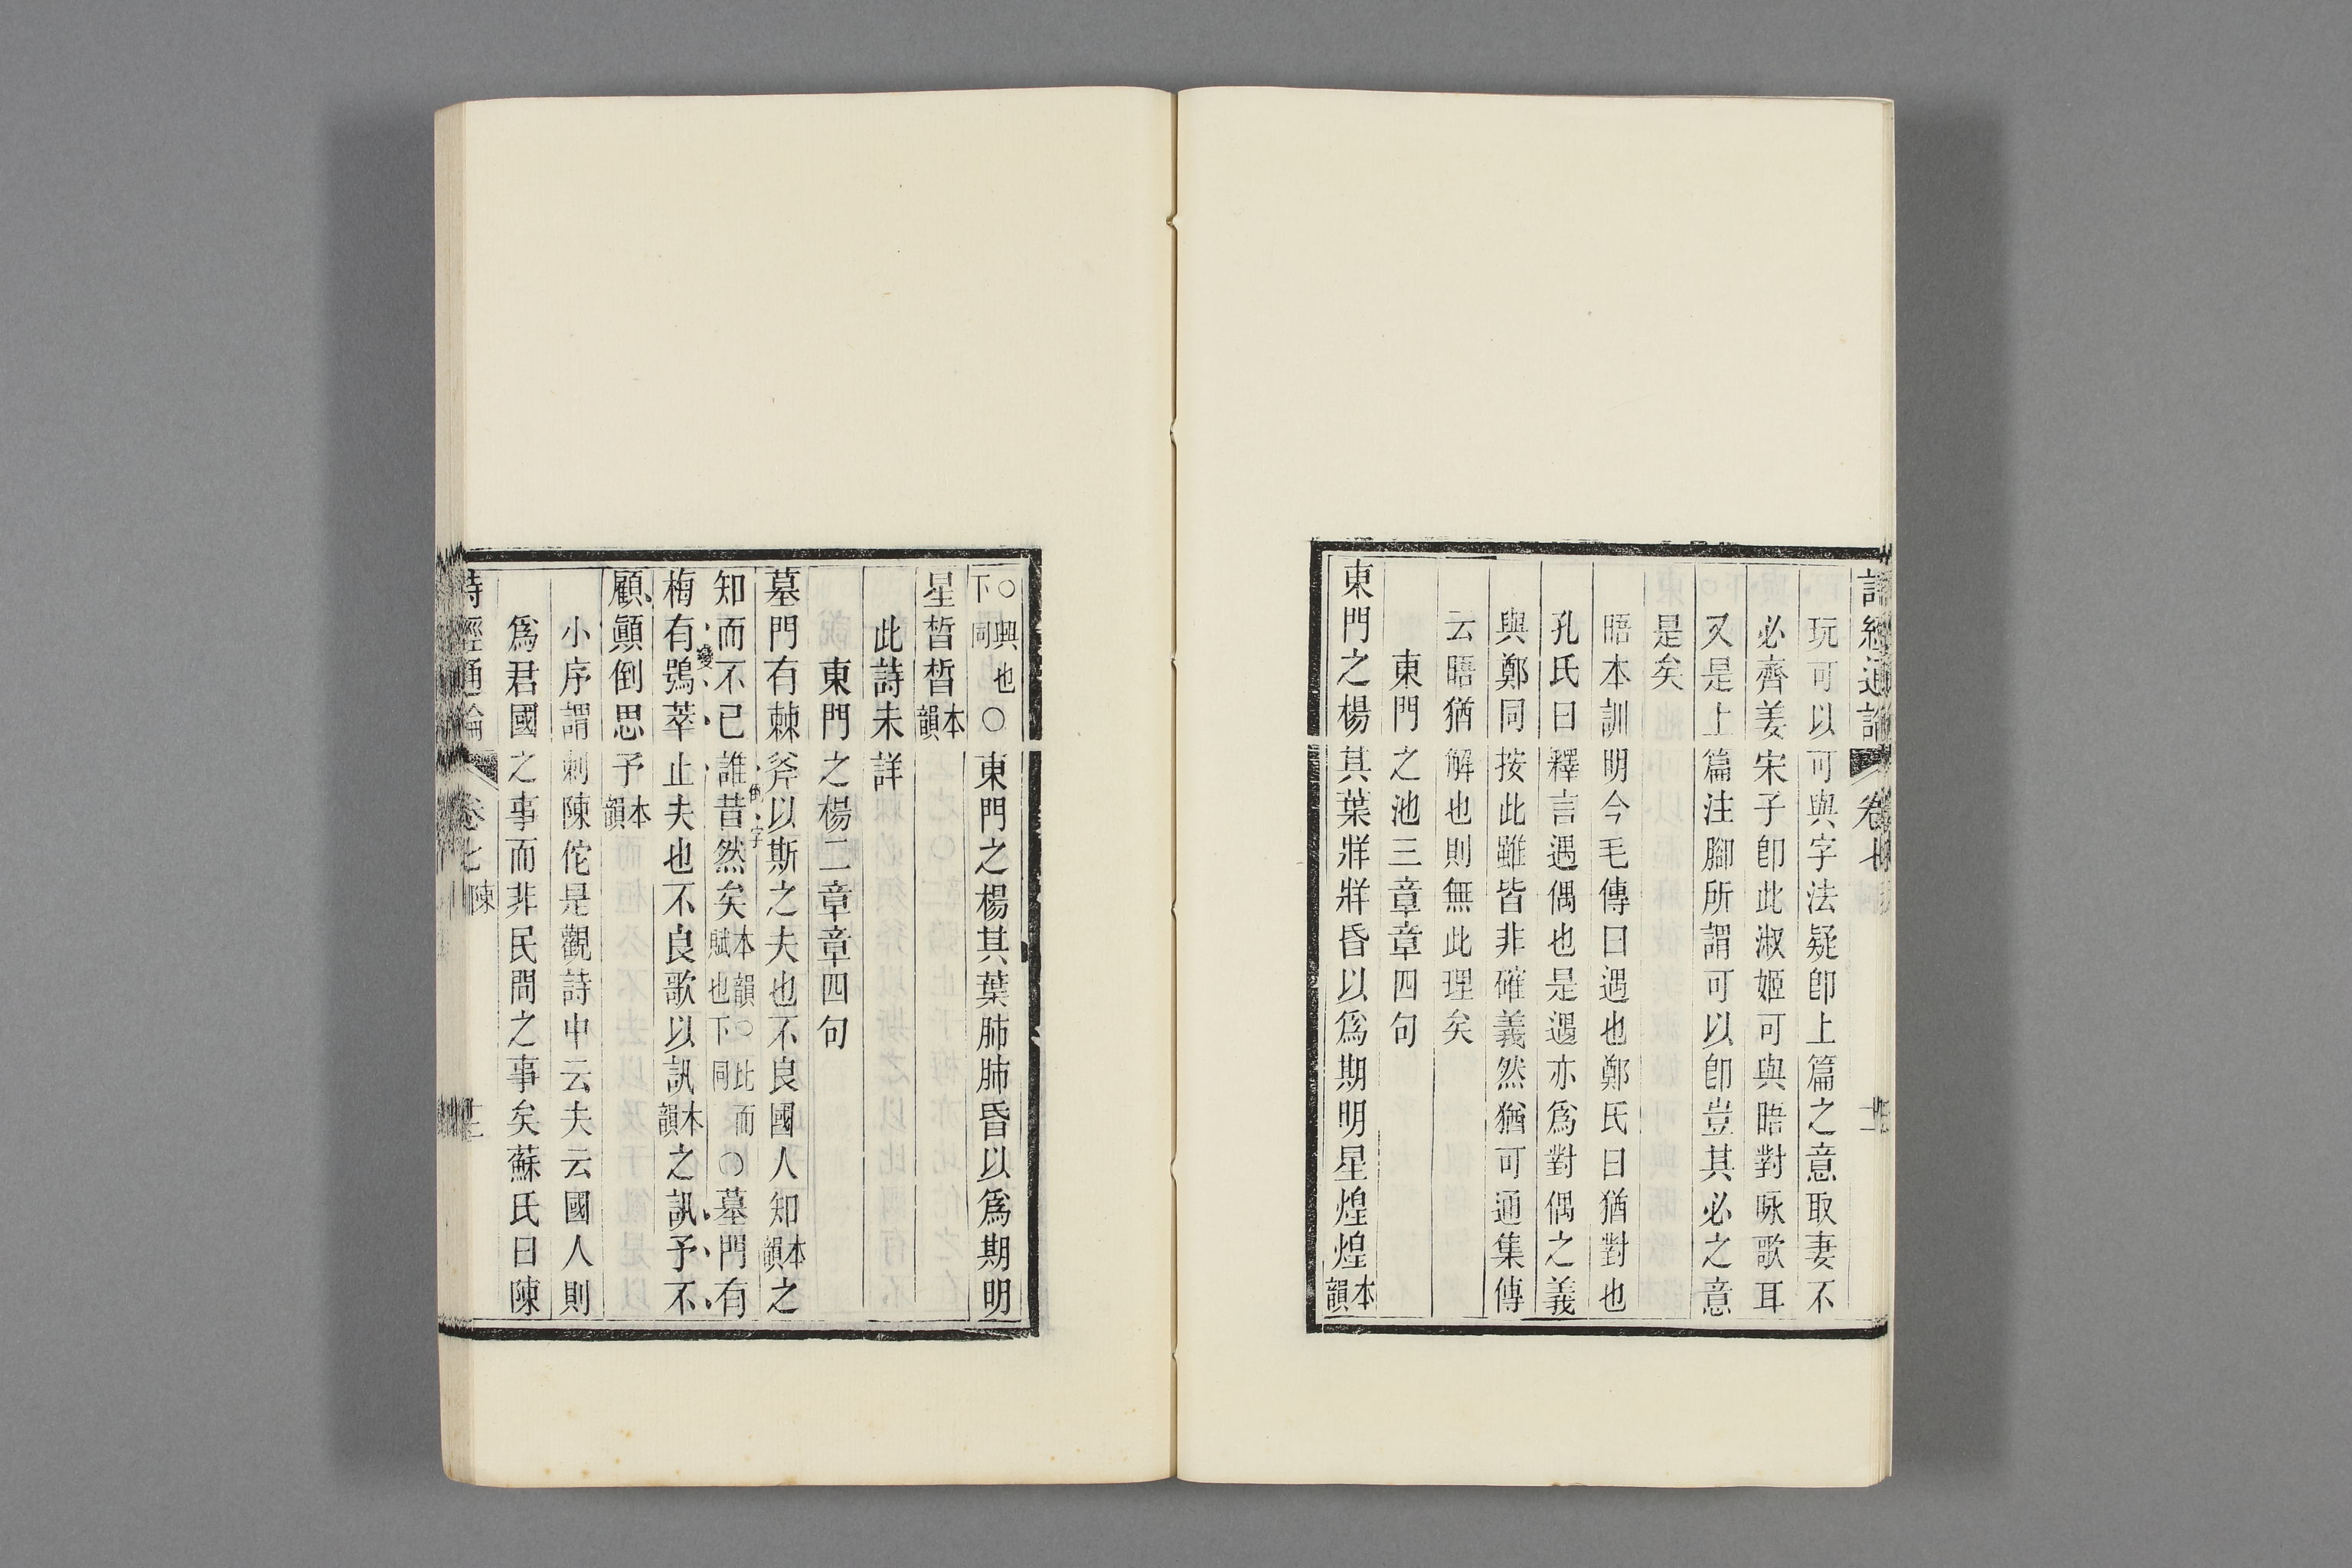 詩經通論 卷七
玩可以可與字法疑卽上篇之意取妻不
必齊姜宋子卽此淑姬可與晤對咏歌耳
又是上篇注腳所謂可以卽豈其必之意
是矣
晤本訓明今毛傳曰遇也鄭氏曰猶對也
孔氏曰釋言遇偶也是遇亦爲對偶之義
與鄭同按此雖皆非確義然猶可通集傳
云晤猶解也則無此理矣
東門之池三章章四句
東門之楊其葉牂牂昏以爲期明星煌煌本韻
○興也下同○東門之楊其葉肺肺昏以爲期明
星晢晢本韻
此詩未詳
東門之楊二章章四句
墓門有棘斧以斯之夫也不良國人知本韻之
知而不已誰昔然矣本韻○此而賦也下同○墓門有
梅有鴞萃止夫也不良歌以訊本韻之訊予不
顧顚倒思予本韻
小序謂刺陳佗是觀詩中云夫云國人則
爲君國之事而非民間之事矣蘇氏曰陳
詩經通論 卷七 陳